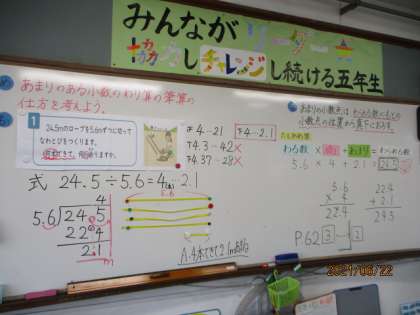 みんなが リーダー
協力し チャレンジし続ける五年生
あまりのある小数のわり算の筆算の
仕方を考えよう。
1
24.5mのロープを5.6mずつに切って
なわとびをつくります。
何本できて、何mあまりますか。
ア 4…21
イ 4.3…42×
ウ 4.37…28×
ア 4…2.1
式 24.5÷5.6=4…2.1
4
5.6)24.5
224
2.1
m
5.6
A.4本できて2.1mあまる
あまりの小数点は、わられる数のもとの
小数点の位置から真下におろす。
たしかめ算
わる数 × 商 + あまり = わられる数
5.6 × 4 + 2.1 = 24.5
5.6
× 4
22.4
22.4
+ 2.1
24.5
P.62 3 2
2021/06/22